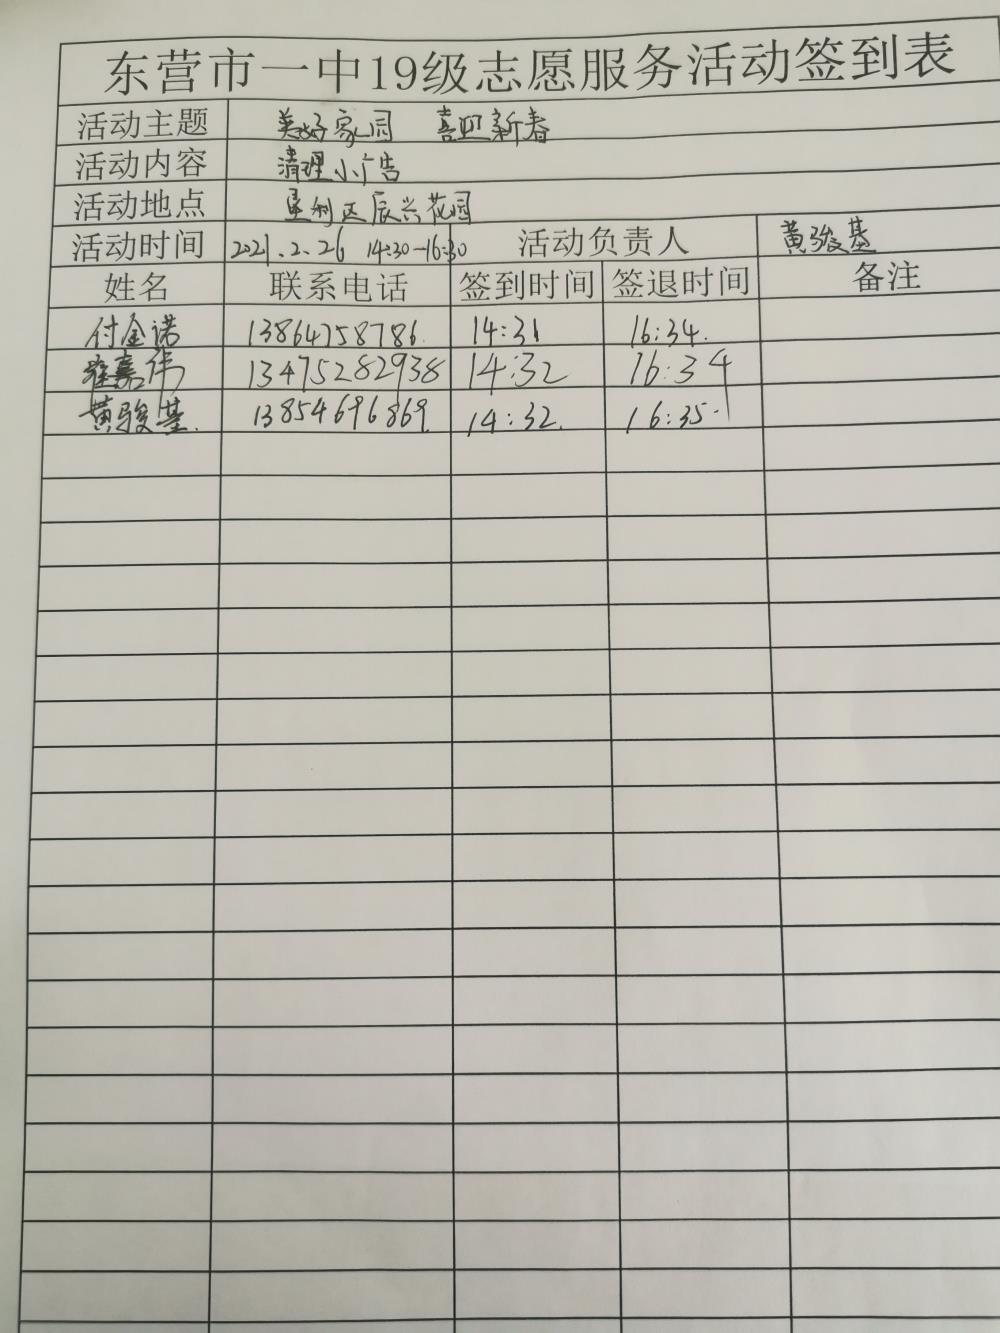 东营市一中19级志愿服务活动签到表
活动主题 美好家园 喜迎新春
活动内容 清理小广告
活动地点 垦利区辰兴花园
活动时间 2021.2.26 14:30-16:30 活动负责人 黄骏基
姓名 联系电话 签到时间 签退时间 备注
付金诺 13864758786 14:31 16:34.
崔嘉伟 13475282938 14:32 16:34
黄骏基. 13854696869. 14:32. 16:35.